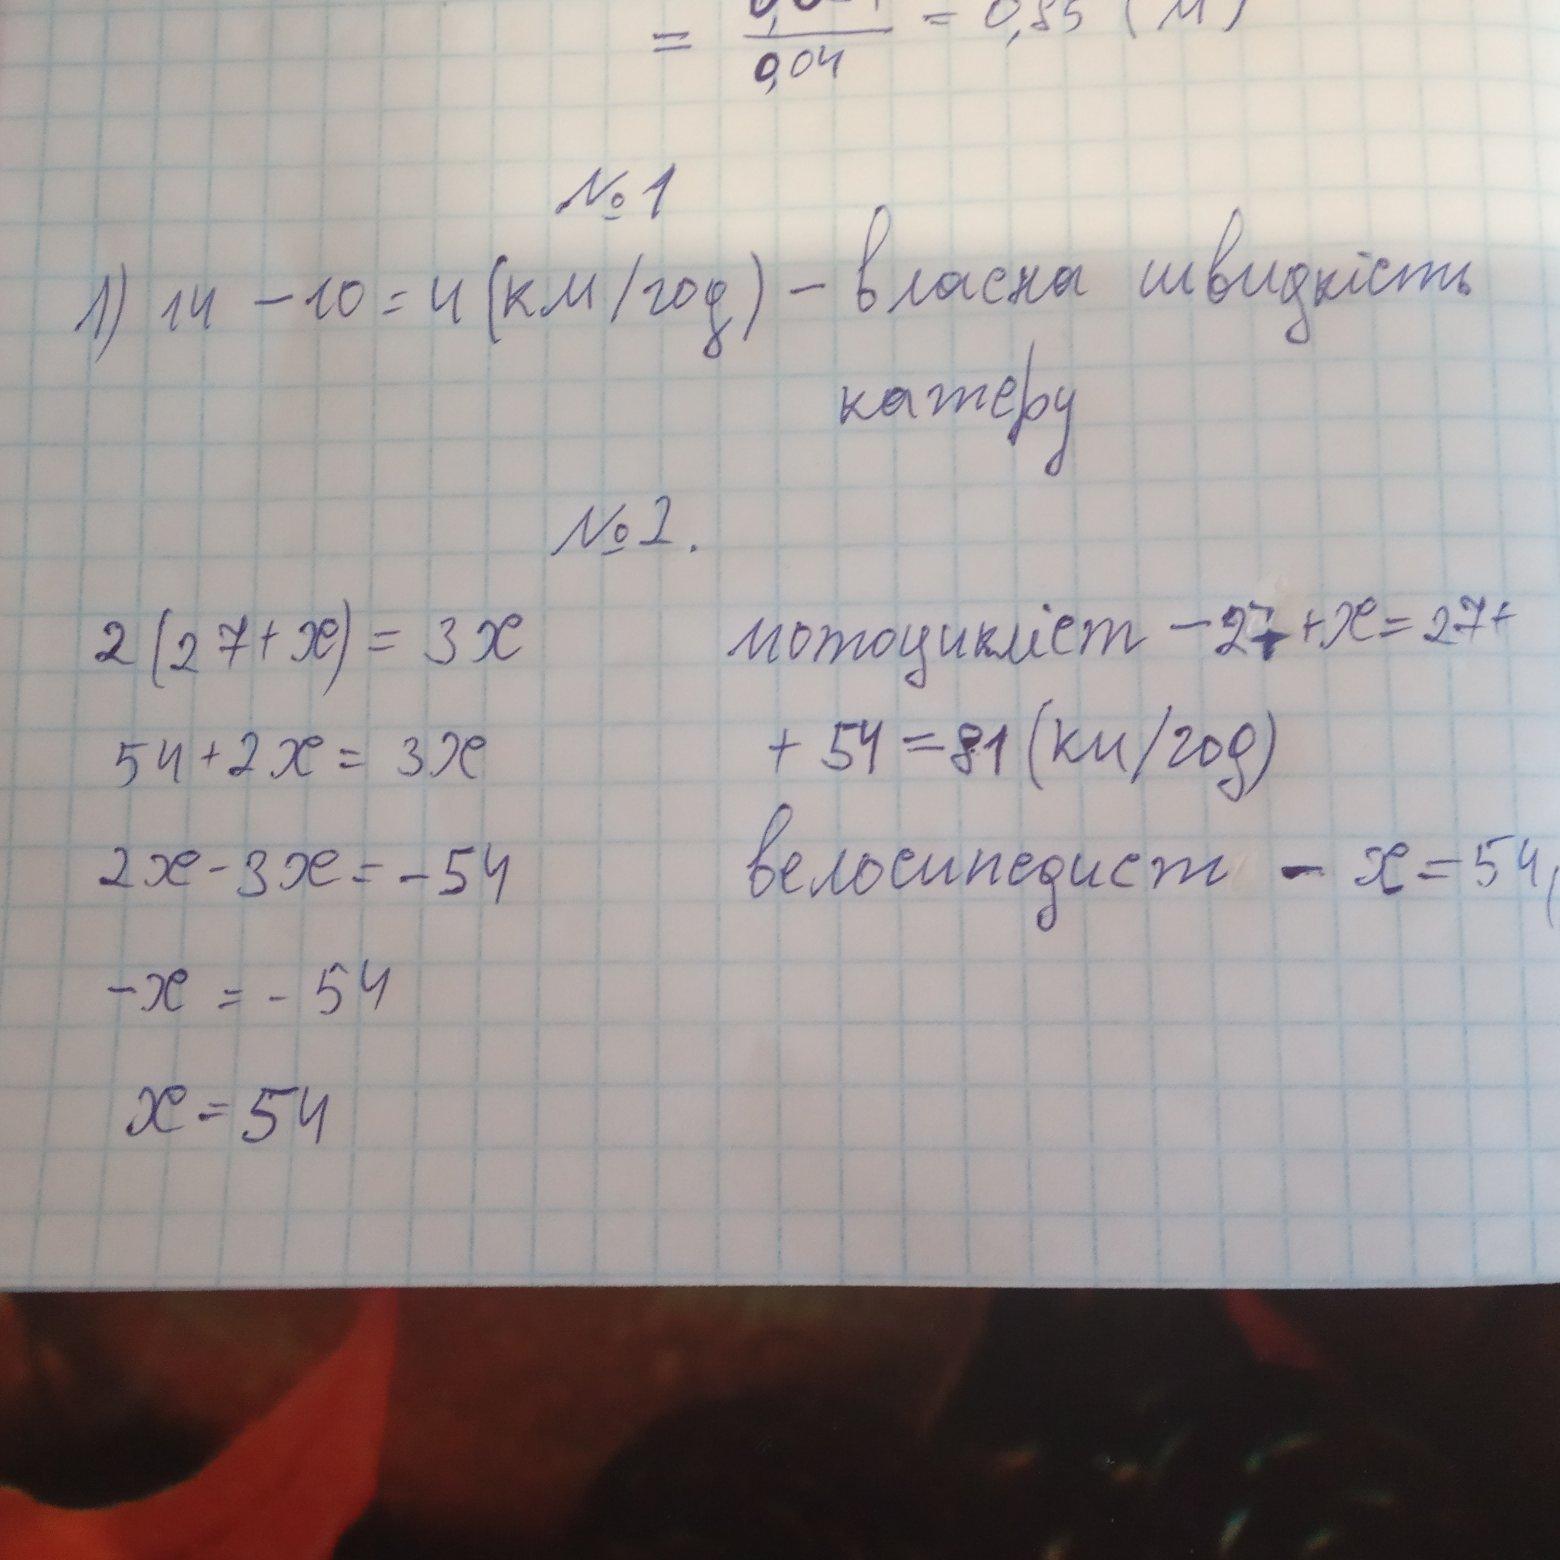 = / 0,04 = 0,85 (м)
№1
1) 14 - 10 = 4 (км/год) - власна швидкість
катеру
№2.
2(27+x) = 3x
54+2x = 3x
2x-3x = -54
-x = -54
x = 54
мотоцикліст - 27 + x = 27+
+ 54 = 81 (км/год)
велосипедист - x = 54 (